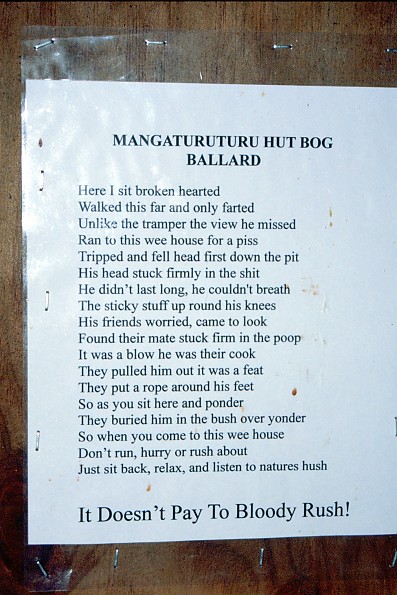 MANGATURUTURU HUT BOG
BALLARD
Here I sit broken hearted
Walked this far and only farted
Unlike the tramper the view he missed
Ran to this wee house for a piss
Tripped and fell head first down the pit
His head stuck firmly in the shit
He didn't last long, he couldn't breath
The sticky stuff up round his knees
His friends worried, came to look
Found their mate stuck firm in the poop
It was a blow he was their cook
They pulled him out it was a feat
They put a rope around his feet
So as you sit here and ponder
They buried him in the bush over yonder
So when you come to this wee house
Don't run, hurry or rush about
Just sit back, relax, and listen to natures hush
It Doesn't Pay To Bloody Rush!